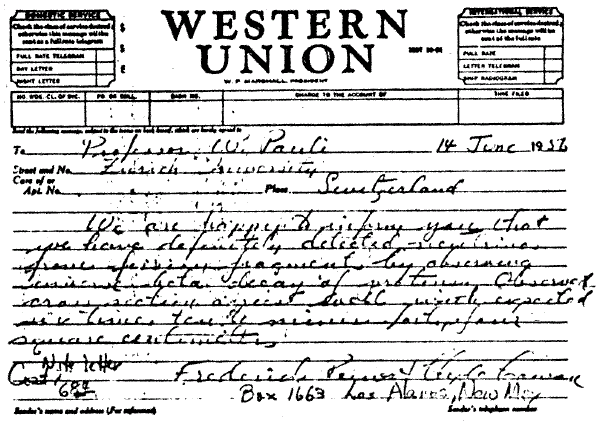 DOMESTIC SERVICE
Check the class of service desired;
otherwise this message will be
sent as a full rate telegram
FULL RATE TELEGRAM
DAY LETTER
NIGHT LETTER
$
$
WESTERN
UNION
W. P. MARSHALL, PRESIDENT
INTERNATIONAL SERVICE
Check the class of service desired;
otherwise this message will be
sent at the full rate
FULL RATE
LETTER TELEGRAM
SHIP RADIOGRAM
NO. WDS.-CL. OF SVC.
PD. OR COLL.
CASH NO.
CHARGE TO THE ACCOUNT OF
TIME FILED
Send the following message, subject to the terms on back hereof, which are hereby agreed to
To Professor W. Pauli 14 June 1956
Street and No. Zurich University
Care of or
Apt. No. Place Switzerland
We are happy to inform you that
we have definitely detected neutrinos
from fission fragments by observing
inverse beta decay of protons. Observed
cross section agrees well with expected
six times ten to minus forty four
square centimeters
Nite letter
Frederick Reines & Clyde Cowan
Box 1663 Los Alamos, New Mex
Sender's name and address (For reference)
Sender's telephone number